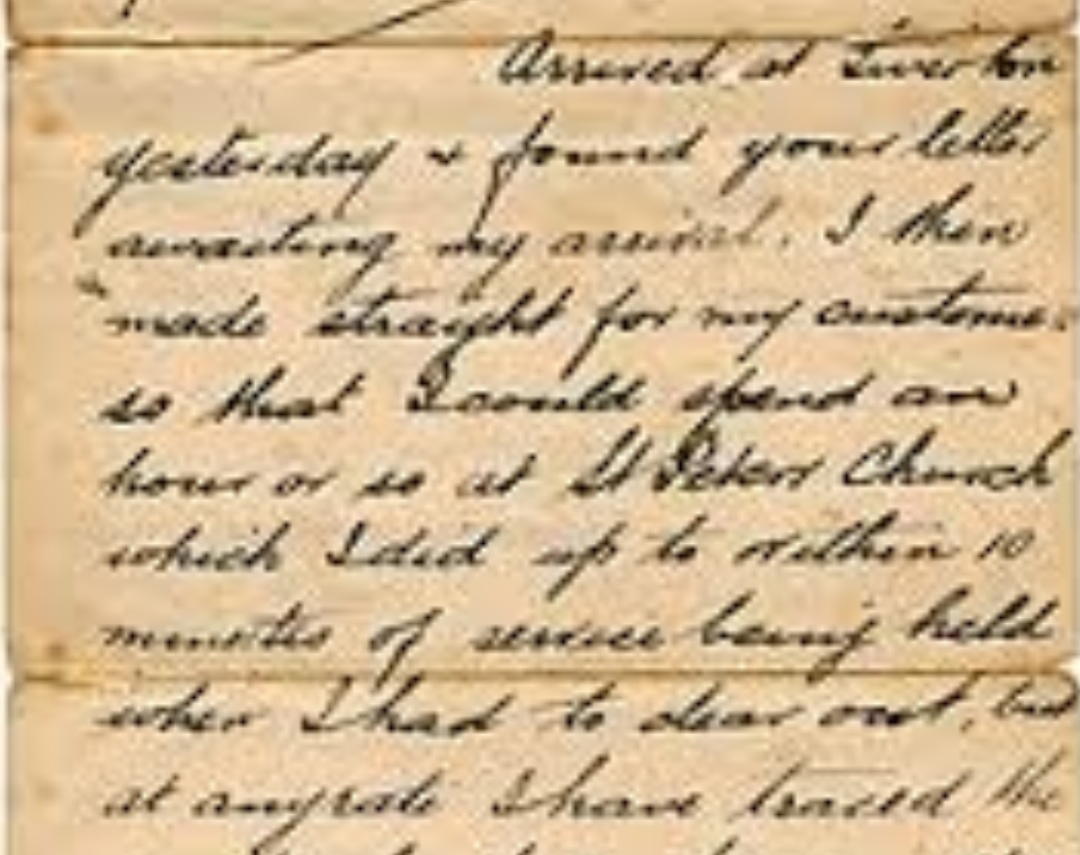 Arrived at Tiverton
yesterday & found your letter
awaiting my arrival. I then
made straight for my customer
so that I could spend an
hour or so at St Peters Church
which I did up to within 10
minutes of service being held
when I had to clear out, but
at anyrate I have traced the